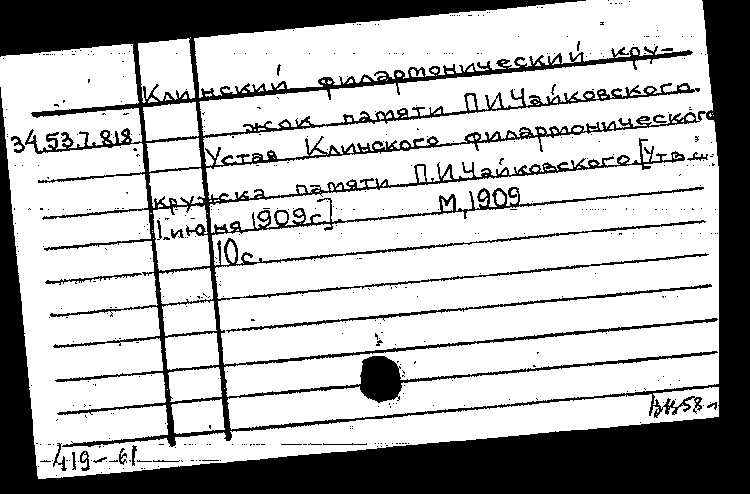 Клинский филармонический кру-
жок памяти П.И.Чайковского.
34.53.7.818
Устав Клинского филармонического
кружка памяти П.И.Чайковского. [Утв.
1 июня 1909г]. М., 1909
10 с.
419-61